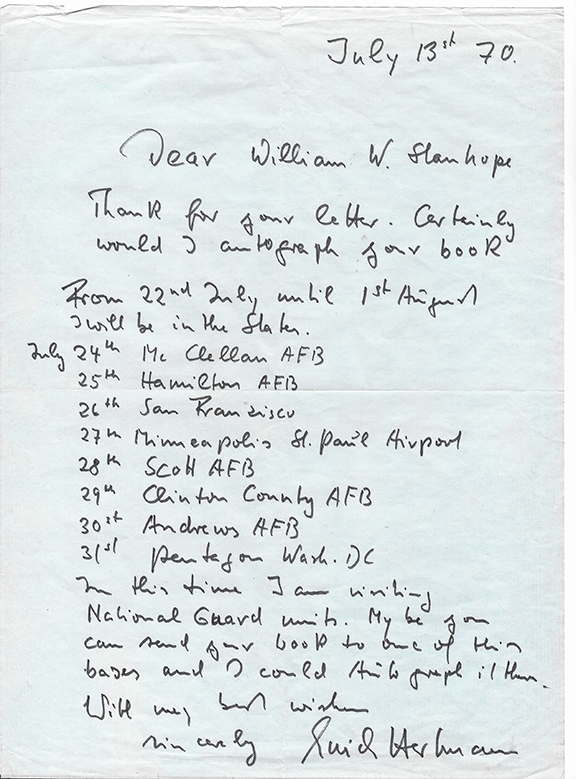 July 13st 70.
Dear William W. Stanhope
Thank for your letter. Certainly
would I autograph your book
From 22nd July until 1st August
I will be in the States.
July 24th Mc Clellan AFB
25th Hamilton AFB
26th San Franzisco
27th Minneapolis St. Paul Airport
28th Scott AFB
29th Clinton County AFB
30st Andrews AFB
31st pentagon Wash. DC
In this time I am visiting
National Guard units. My be you
can send your book to one of this
bases and I could Autograph it then.
With my best wishes
sincerely Erich Hartmann